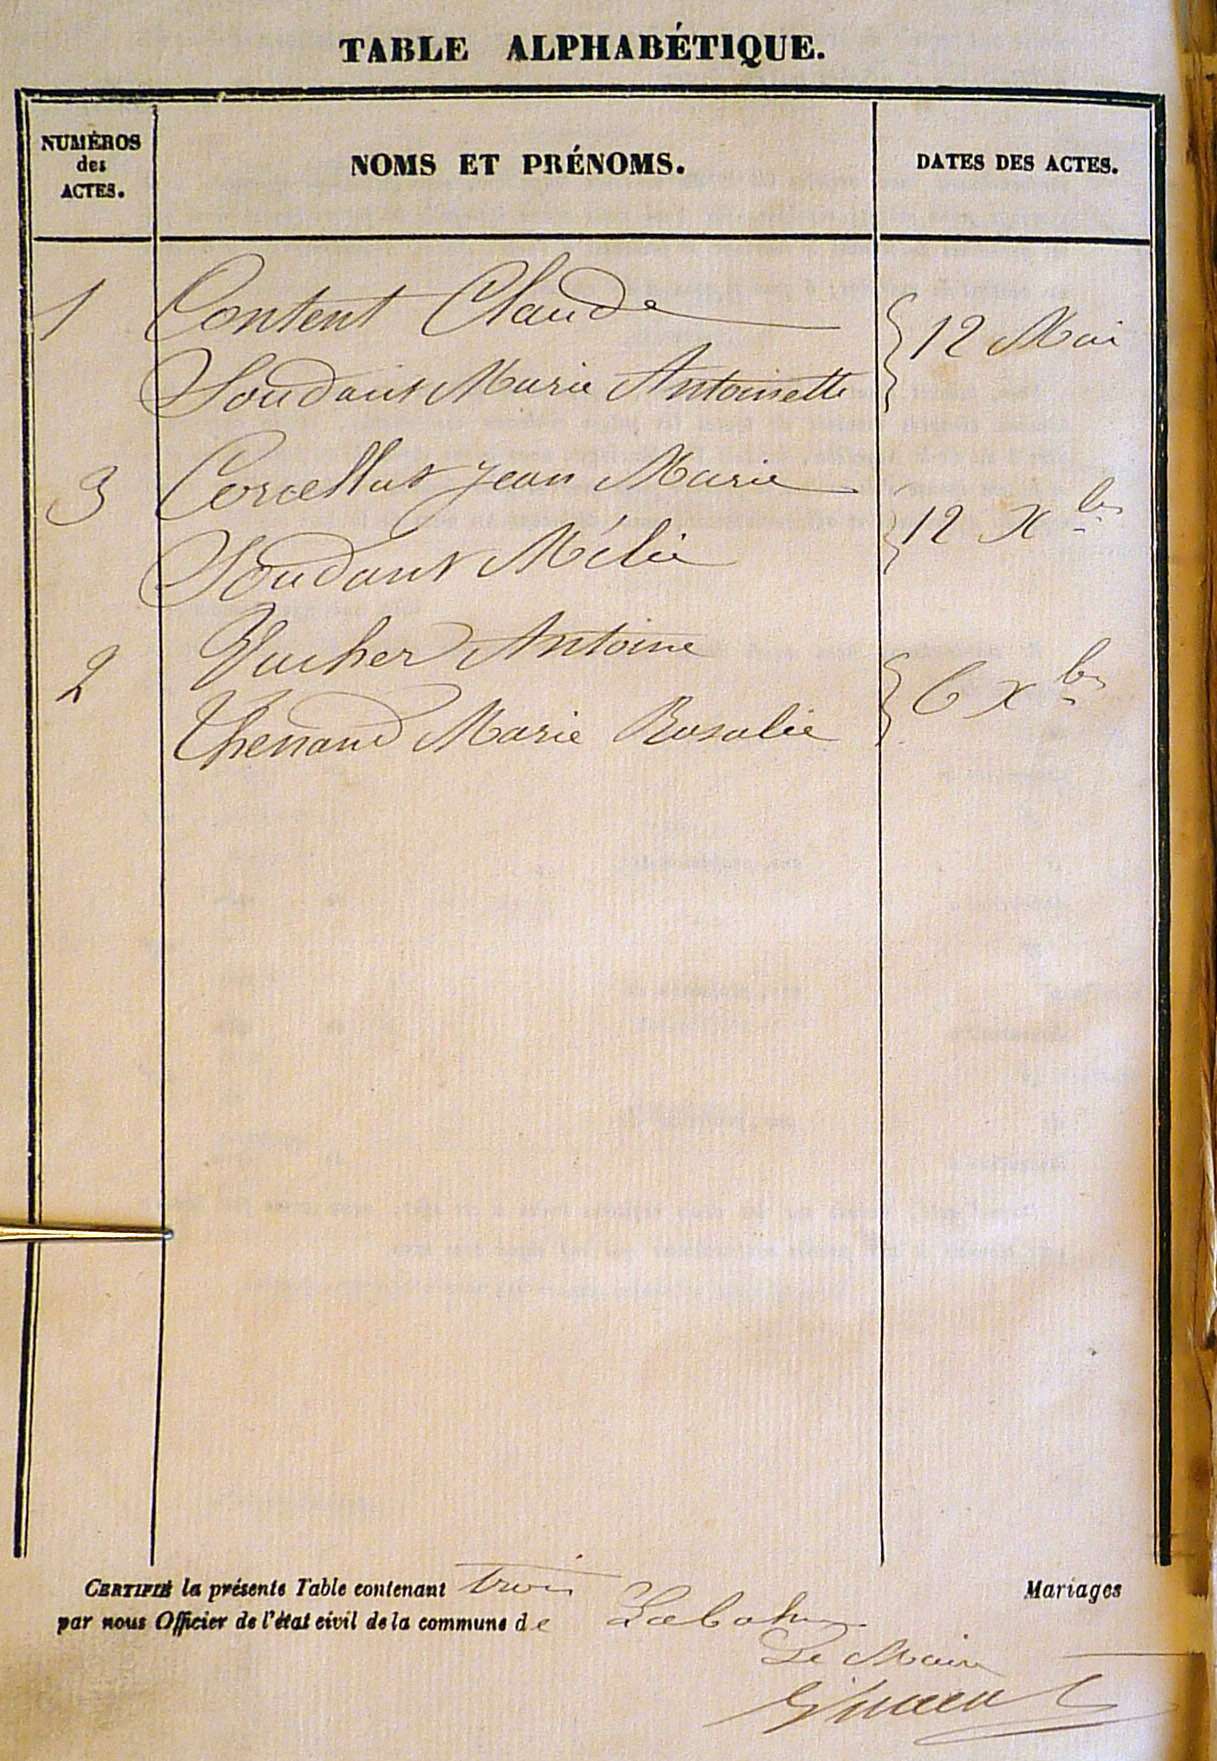 TABLE ALPHABÉTIQUE.
NUMÉROS
des
ACTES.
NOMS ET PRÉNOMS.
DATES DES ACTES.
1 Content Claude
Soudant Marie Antoinette
12 Mai
3 Corcellut Jean Marie
Soudant Mélie
12 Xbre
2 Vucher Antoine
Thenand Marie Rosalie
6 Xbre
CERTIFIÉ la présente Table contenant trois Mariages
par nous Officier de l'état civil de la commune de
Le Maire